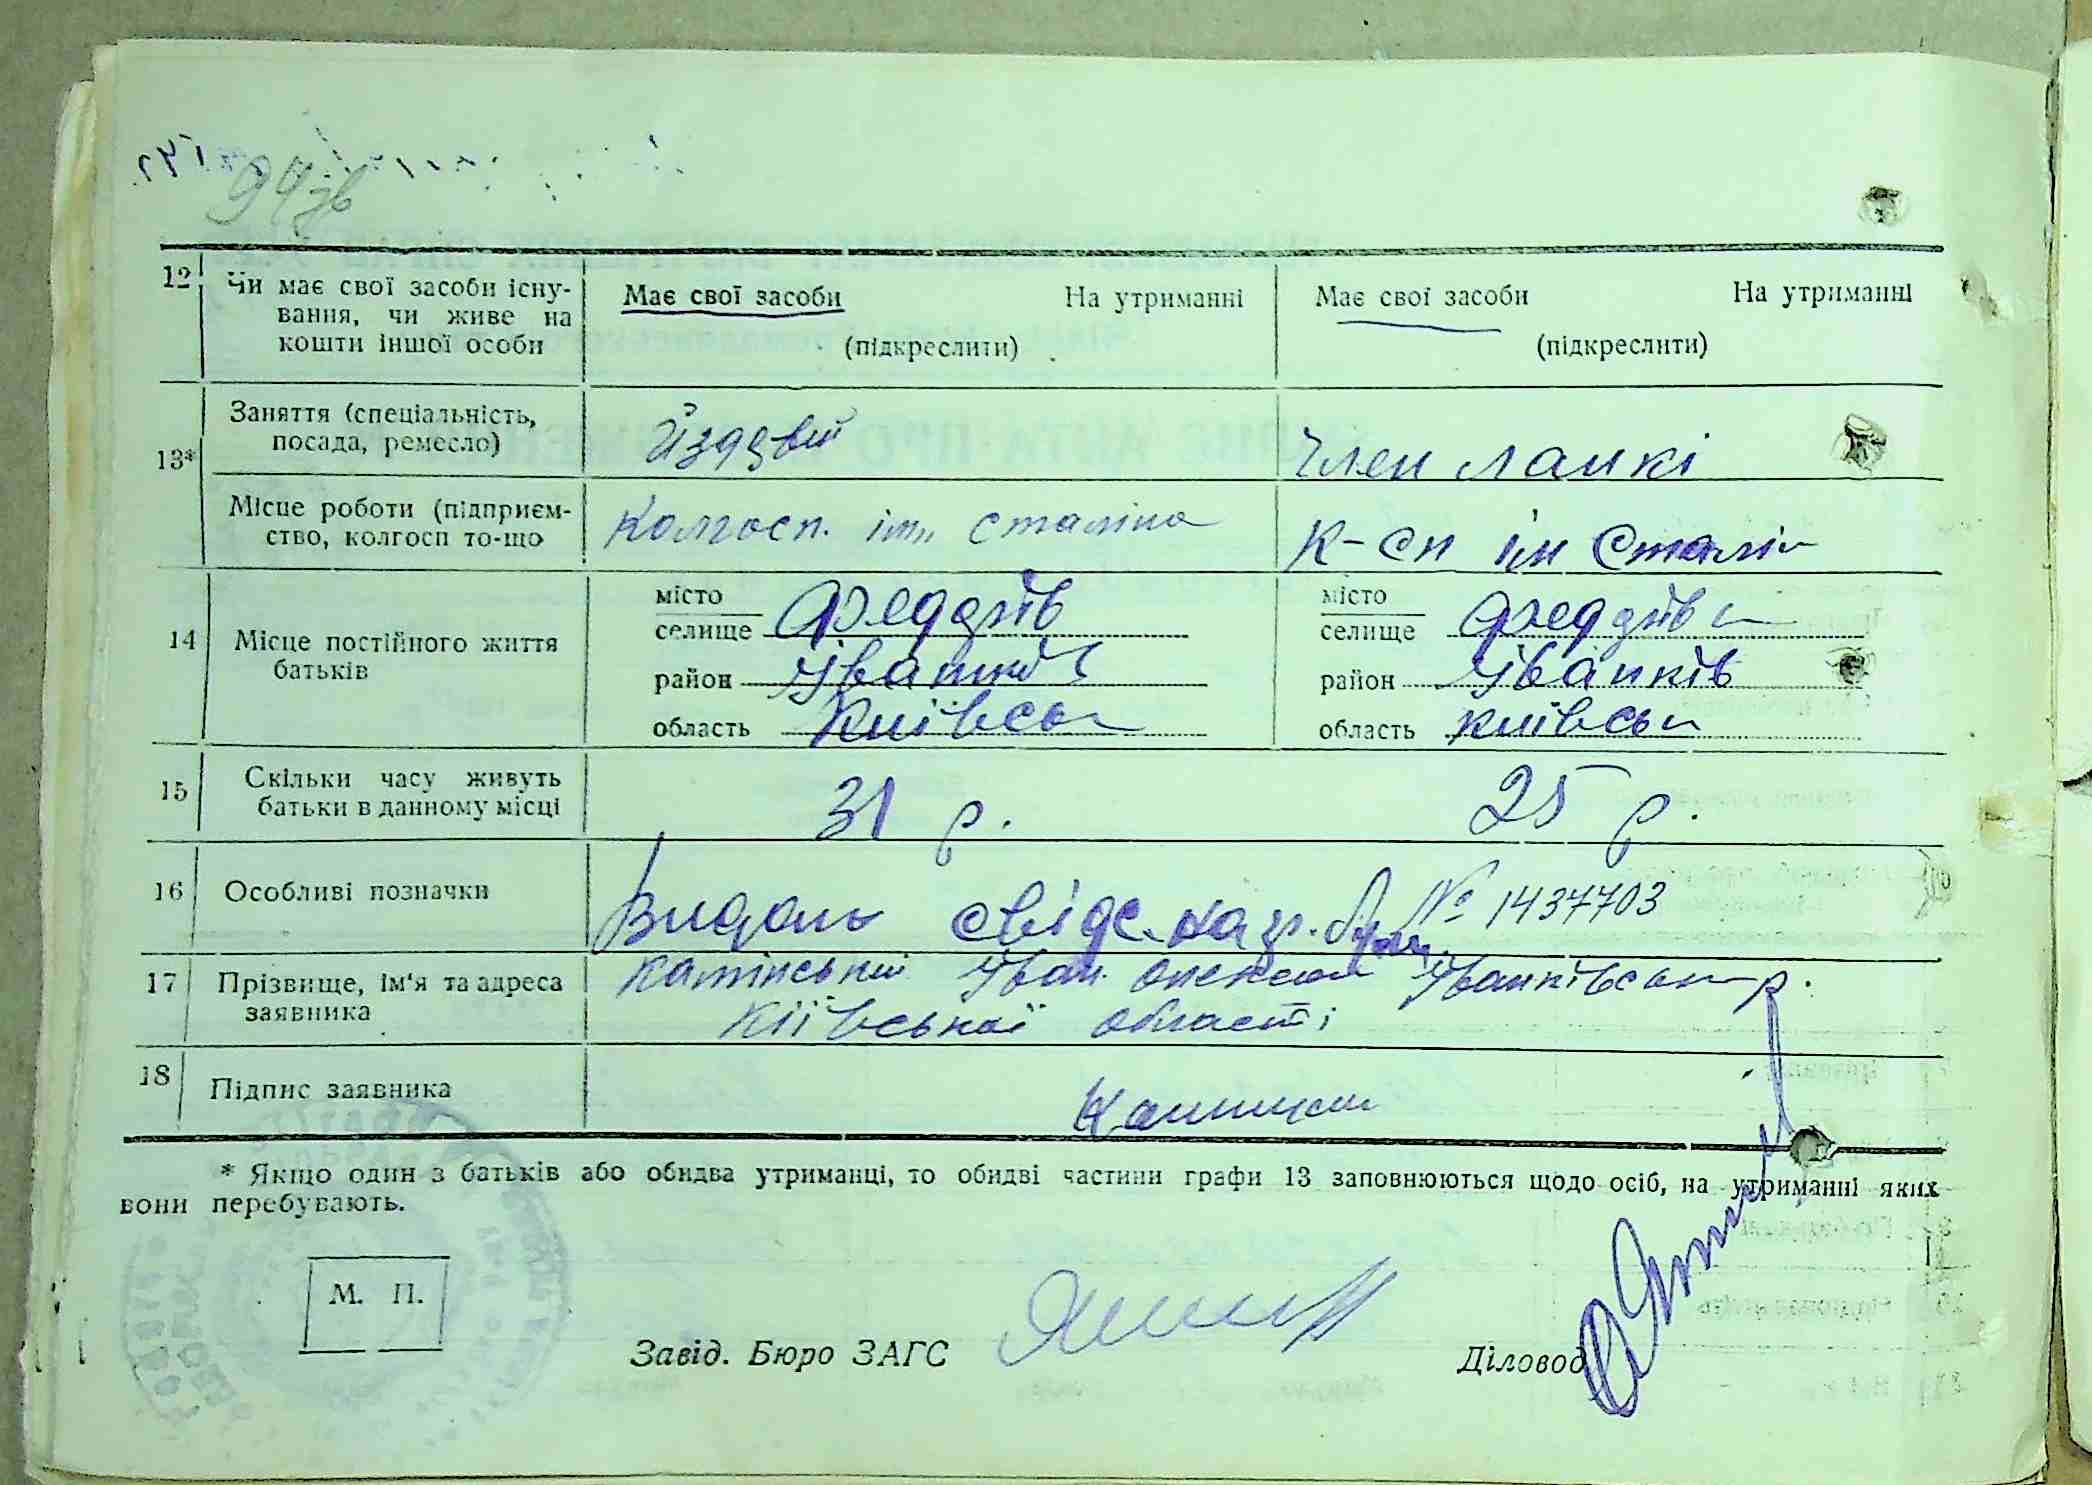 94зв
12 Чи має свої засоби існу-
вання, чи живе на
кошти іншої особи
Має свої засоби На утриманні
(підкреслити)
Має свої засоби На утриманні
(підкреслити)
13* Заняття (спеціальність,
посада, ремесло)
Їздовий
Член ланкі
Місце роботи (підприєм-
ство, колгосп то-що
Колгосп. ім. Сталіна
к-сп ім Сталін
14 Місце постійного життя
батьків
місто
селище Феддрів
район Іванків
область Київськ
місто
селище
район Іванків
область київськ
15 Скільки часу живуть
батьки в данному місці
31 р.
25 р.
16 Особливі позначки
Видано свідс. на № 1437703
17 Прізвище, ім'я та адреса
заявника
Камінський Іван Іванківськ р.
Київської області
18 Підпис заявника
* Якщо один з батьків або обидва утриманці, то обидві частини графи 13 заповнюються щодо осіб, на утриманні яких
вони перебувають.
М. П.
Завід. Бюро ЗАГС
Діловод